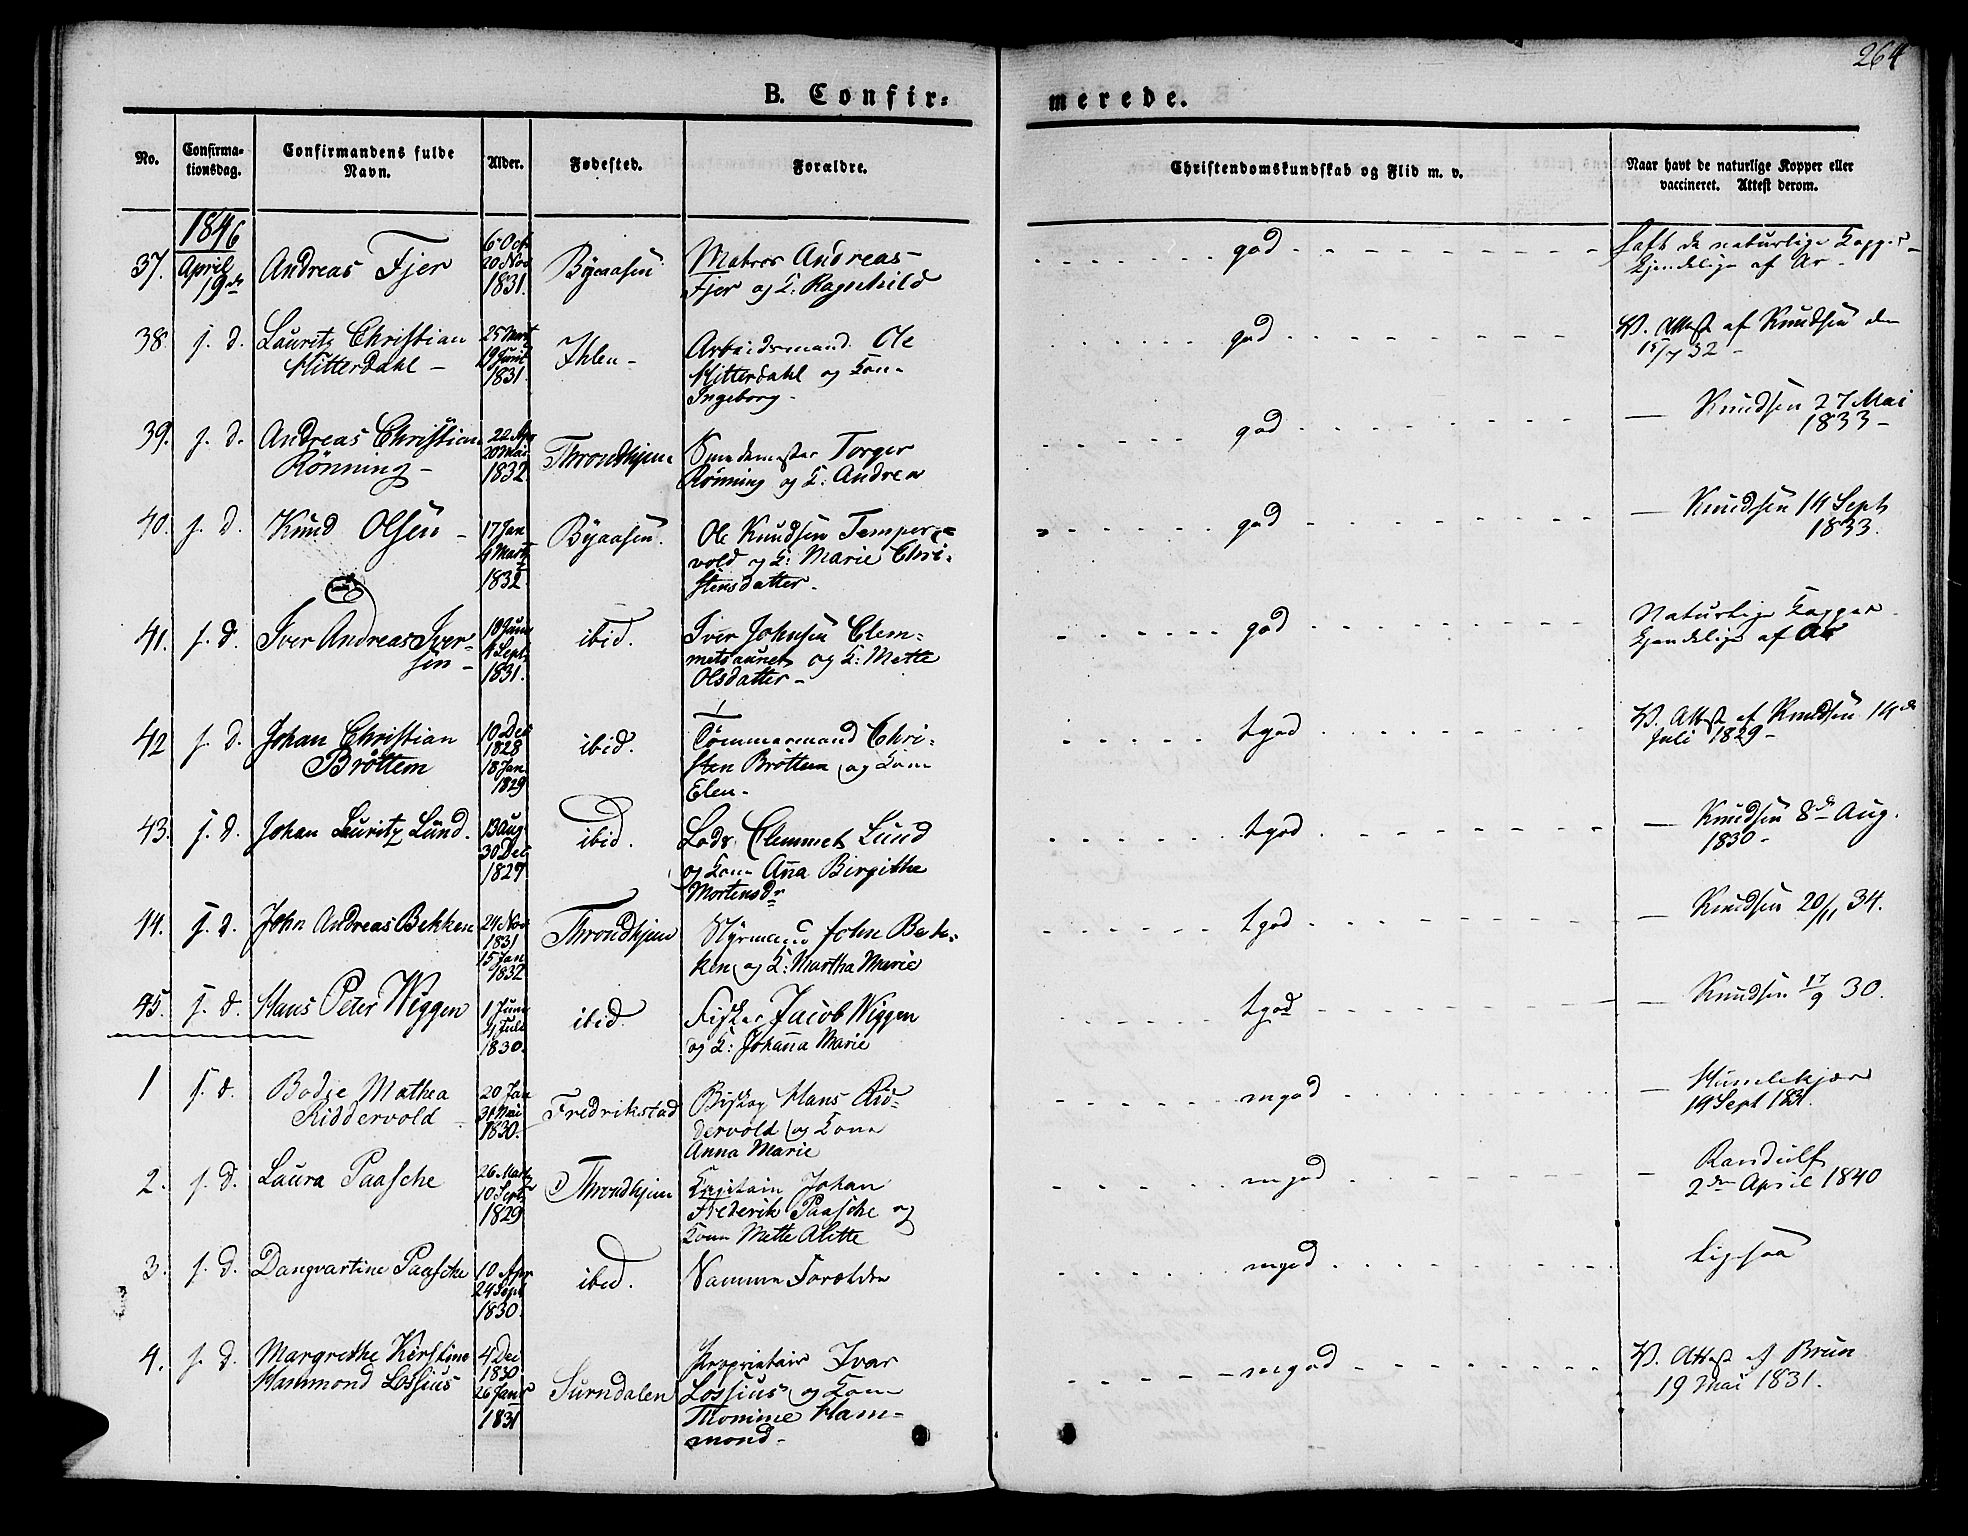 264
B. Confir=
merede.
No.
Confirma-
tionsdag.
Confirmandens fulde
Navn.
Alder.
Fødested.
Forældre.
Christendomskundskab og Flid m. v.
Naar havt de naturlige Kopper eller
vaccineret. Attest derom.
1846
37.
April
19de
Andreas Fjer
6 Oct
20 Nov
1831.
Byaasen
Matros Andreas
Fjer og K: Ragnhild
god
haft de naturlige Kopper
kjendelige af Ar -
38.
s. d.
Lauritz Christian
Hitterdahl -
25 Mart
19 Juni
1831.
Ihlen -
Arbeidsmand Ole
Hitterdahl og Kone
Ingeborg -
god
V. Attest af Knudsen den
15/7 32 -
39.
s. d.
Andreas Christian
Rönning -
22 Apr
20 Mai
1832.
Throndhjem
Smedemester Torger
Rönning og K: Andrea
god
— Knudsen 27 Mai
1833 -
40.
s. d.
Knud Olsen -
17 Jan
4 Mart
1832
Byaasen.
Ole Knudsen Temper=
vold og K: Marie Chri-
stensdatter -
god
— Knudsen 14 Sept
1833.
41.
s. d.
Iver Andreas Iver-
sen -
18 Juni
4 Sept
1831.
ibid.
Iver Johnsen Clem=
metsaunet og K: Mette
Olsdatter -
god
Naturlige Kopper
kjendelige af Ar
42
s. d.
Johan Christian
Bröttem
10 Dec
1828
18 Jan
1829
ibid.
Tømmermand Chri-
sten Bröttem og Kone
Elen -
tgod
V. Attest af Knudsen 14de
Juli 1829 -
43.
s. d.
Johan Lauritz Lund.
13 Aug
30 Dec
1829
ibid.
Lods. Clemmet Lund
og Kone Ana Birgithe
Mortensdr
tgod
— Knudsen 8de Aug.
1830 -
44.
s. d.
John Andreas Bekken
24 Nov
1831
15 Jan
1832
Throndhjem
Styrmand John Bek-
ken og K: Martha Marie
tgod
— Knudsen 20/11 34.
45.
s. d.
Hans Peter Wiggen
1 Juni
4 Juli
1830.
ibid.
Fisker Jacob Wiggen
og K: Johana Marie
tgod
— Knudsen 17/9 30.
1
s. d.
Bodie Mathea
Riddervold
20 Jan
31 Mai
1830.
Fredrikstad
Biskop Hans Rid-
dervold og Kone
Anna Marie
mgod
— Humlekjær
19 Sept 1831.
2.
s. d.
Laura Paasche
26 Mart
10 Sept
1829
Throndhjem
Kapitain Johan
Frederik Paasche og
Kone Mette Alette
mgod
— Randulf
2den April 1840
3.
s. d.
Dangvartine Paasche
10 Apr
24 Sept
1830.
ibid.
Samme Forældre
mgod
Ligesaa
4.
s. d.
Margrethe Kirstine
Hammond Lossius
4 Dec
1830
26 Jan
1831
Surndalen
Proprietair Ivar
Lossius og Kone
Thomine Ham=
mond -
mgod
V. Attest af Brun
19 Mai 1831.